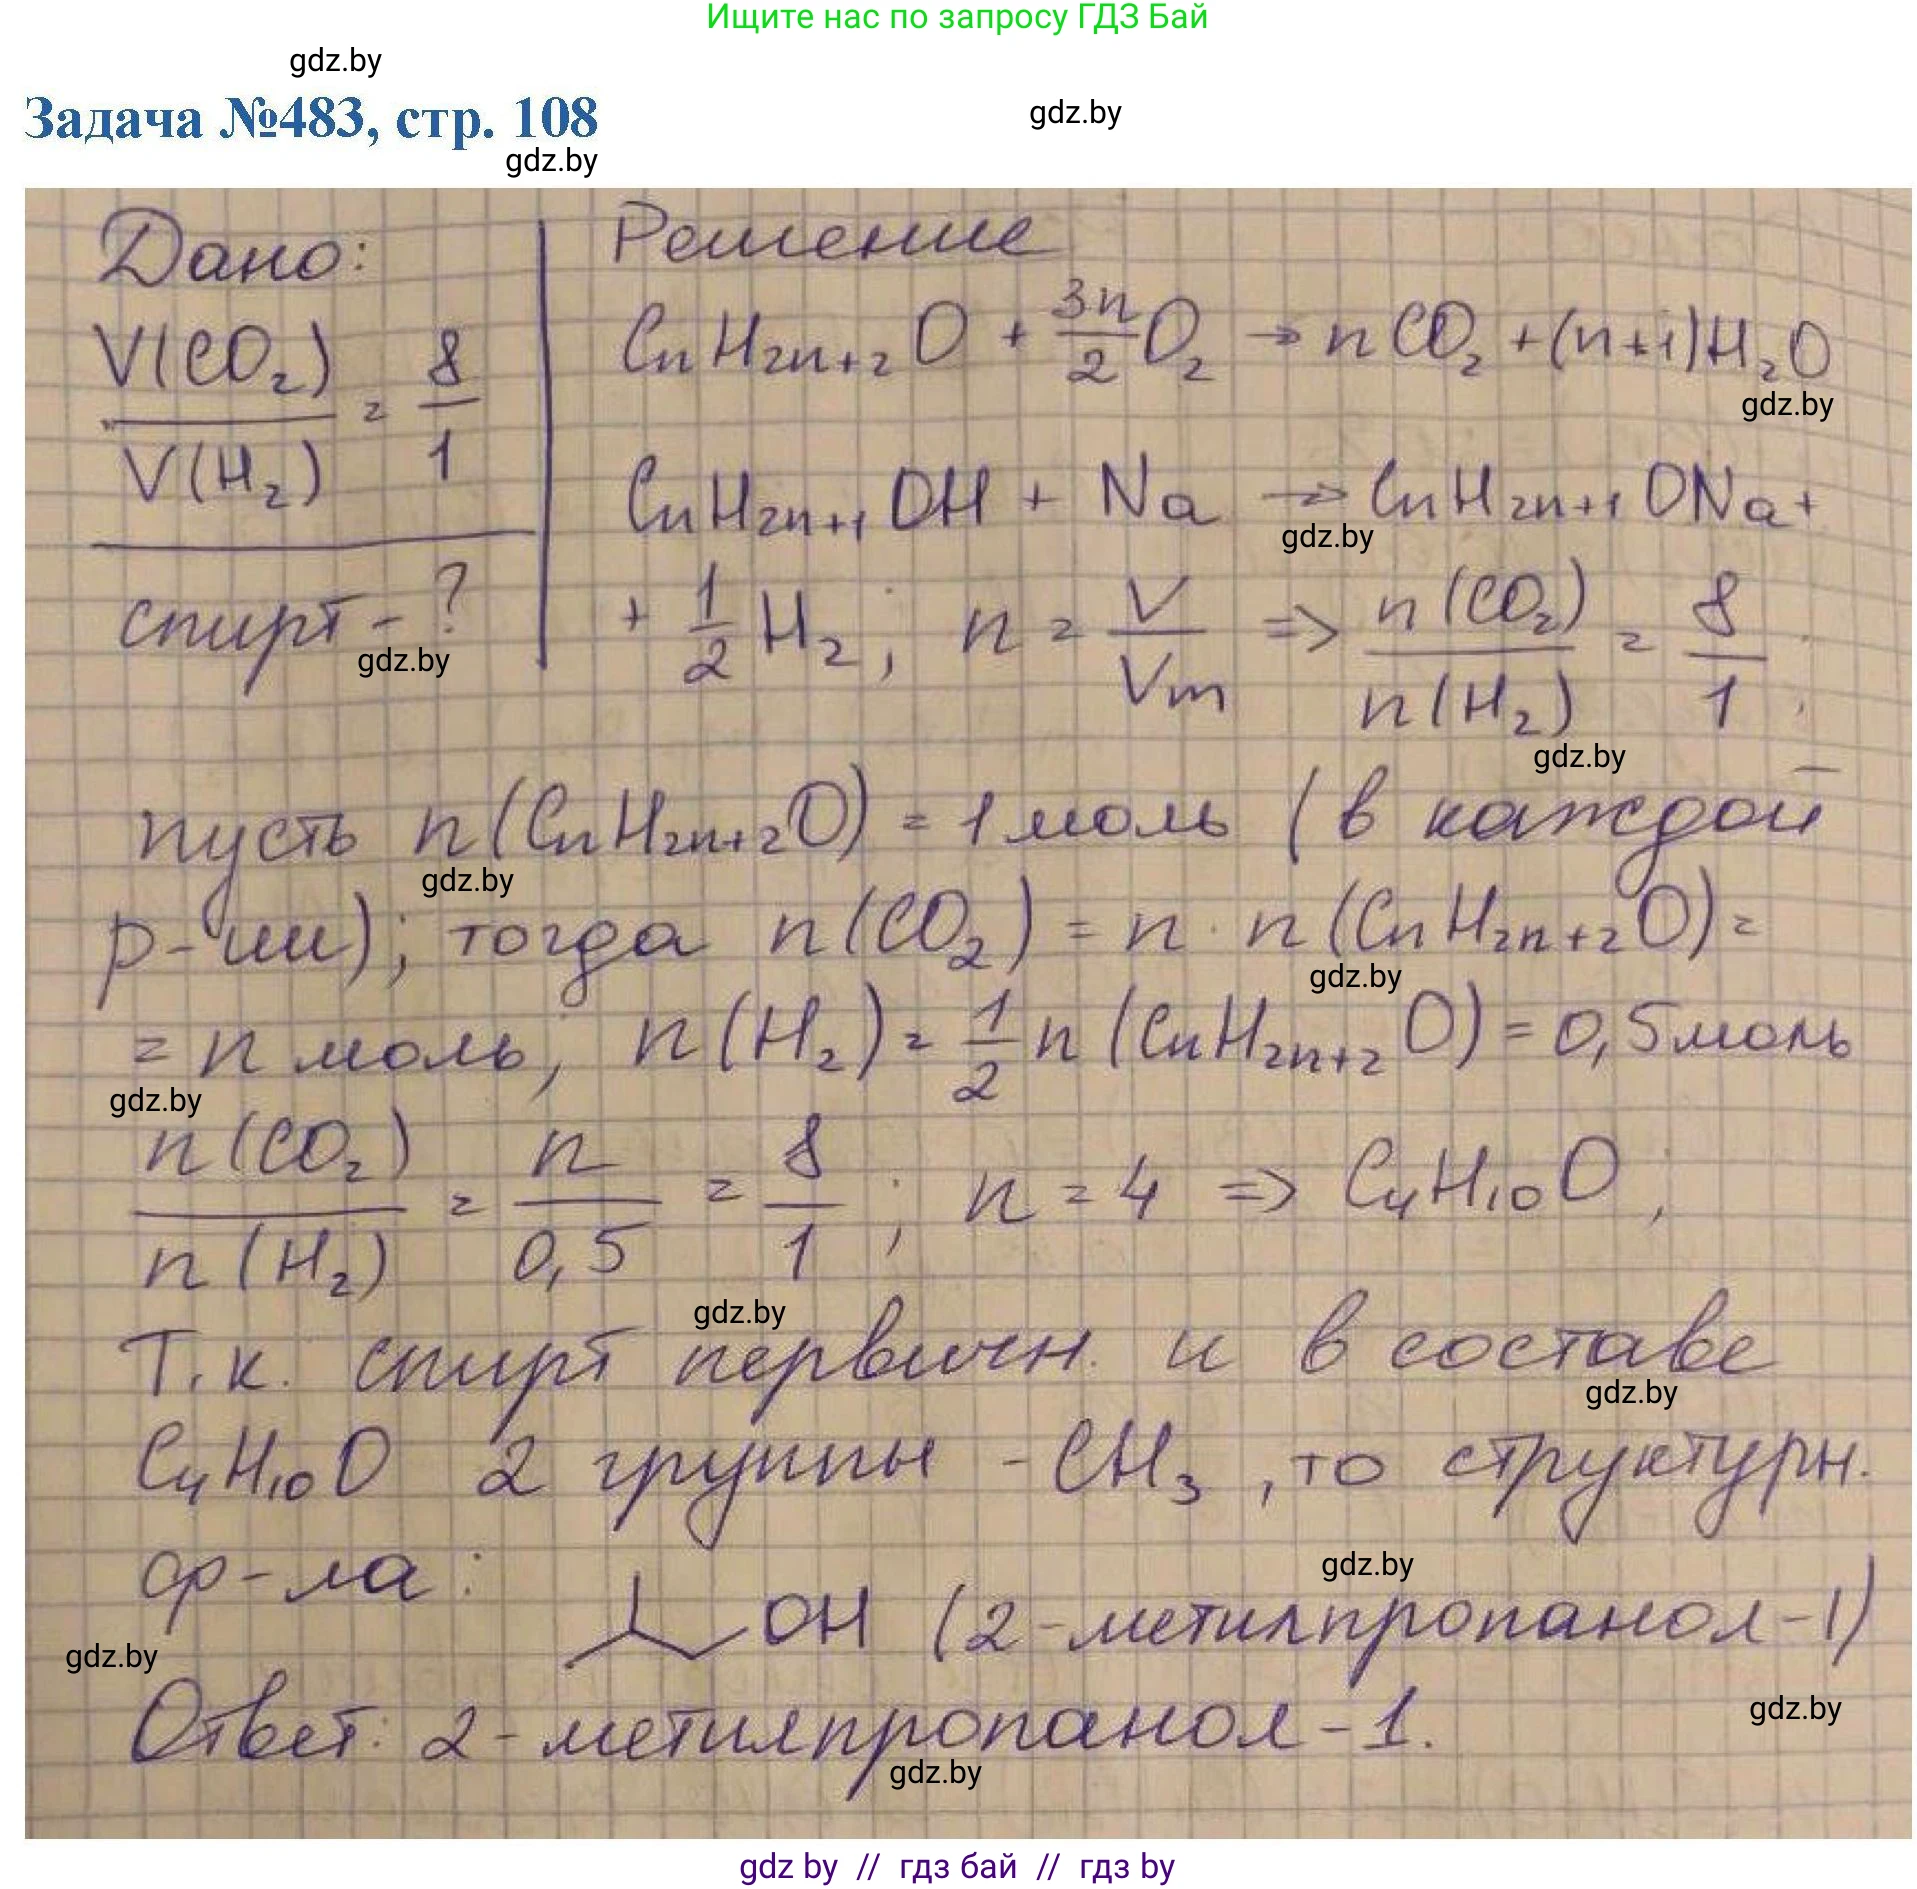 Ищите нас по запросу ГДЗ Бай
gdz.by
Задача №483, стр. 108
gdz.by
gdz.by
Дано:
V(CO₂)/V(H₂) = 8/1
спирт - ?
gdz.by
Решение
CnH2n+2O + 3n/2 O₂ → nCO₂ + (n+1)H₂O
gdz.by
CnH2n+1OH + Na → CnH2n+1ONa +
gdz.by
+ 1/2 H₂; n = V/Vm => n(CO₂)/n(H₂) = 8/1;
gdz.by
пусть n(CnH2n+2O) = 1 моль (в каждой
gdz.by
р-ции); тогда n(CO₂) = n · n(CnH2n+2O) =
gdz.by
= n моль; n(H₂) = 1/2 n(CnH2n+2O) = 0,5 моль
gdz.by
n(CO₂)/n(H₂) = n/0,5 = 8/1; n = 4 => C₄H₁₀O;
gdz.by
Т.к. спирт первичн. и в составе
gdz.by
C₄H₁₀O 2 группы -CH₃, то структурн.
ф-ла: OH (2-метилпропанол-1)
gdz.by
gdz.by
Ответ: 2-метилпропанол-1.
gdz.by
gdz.by
gdz by // гдз бай // гдз by